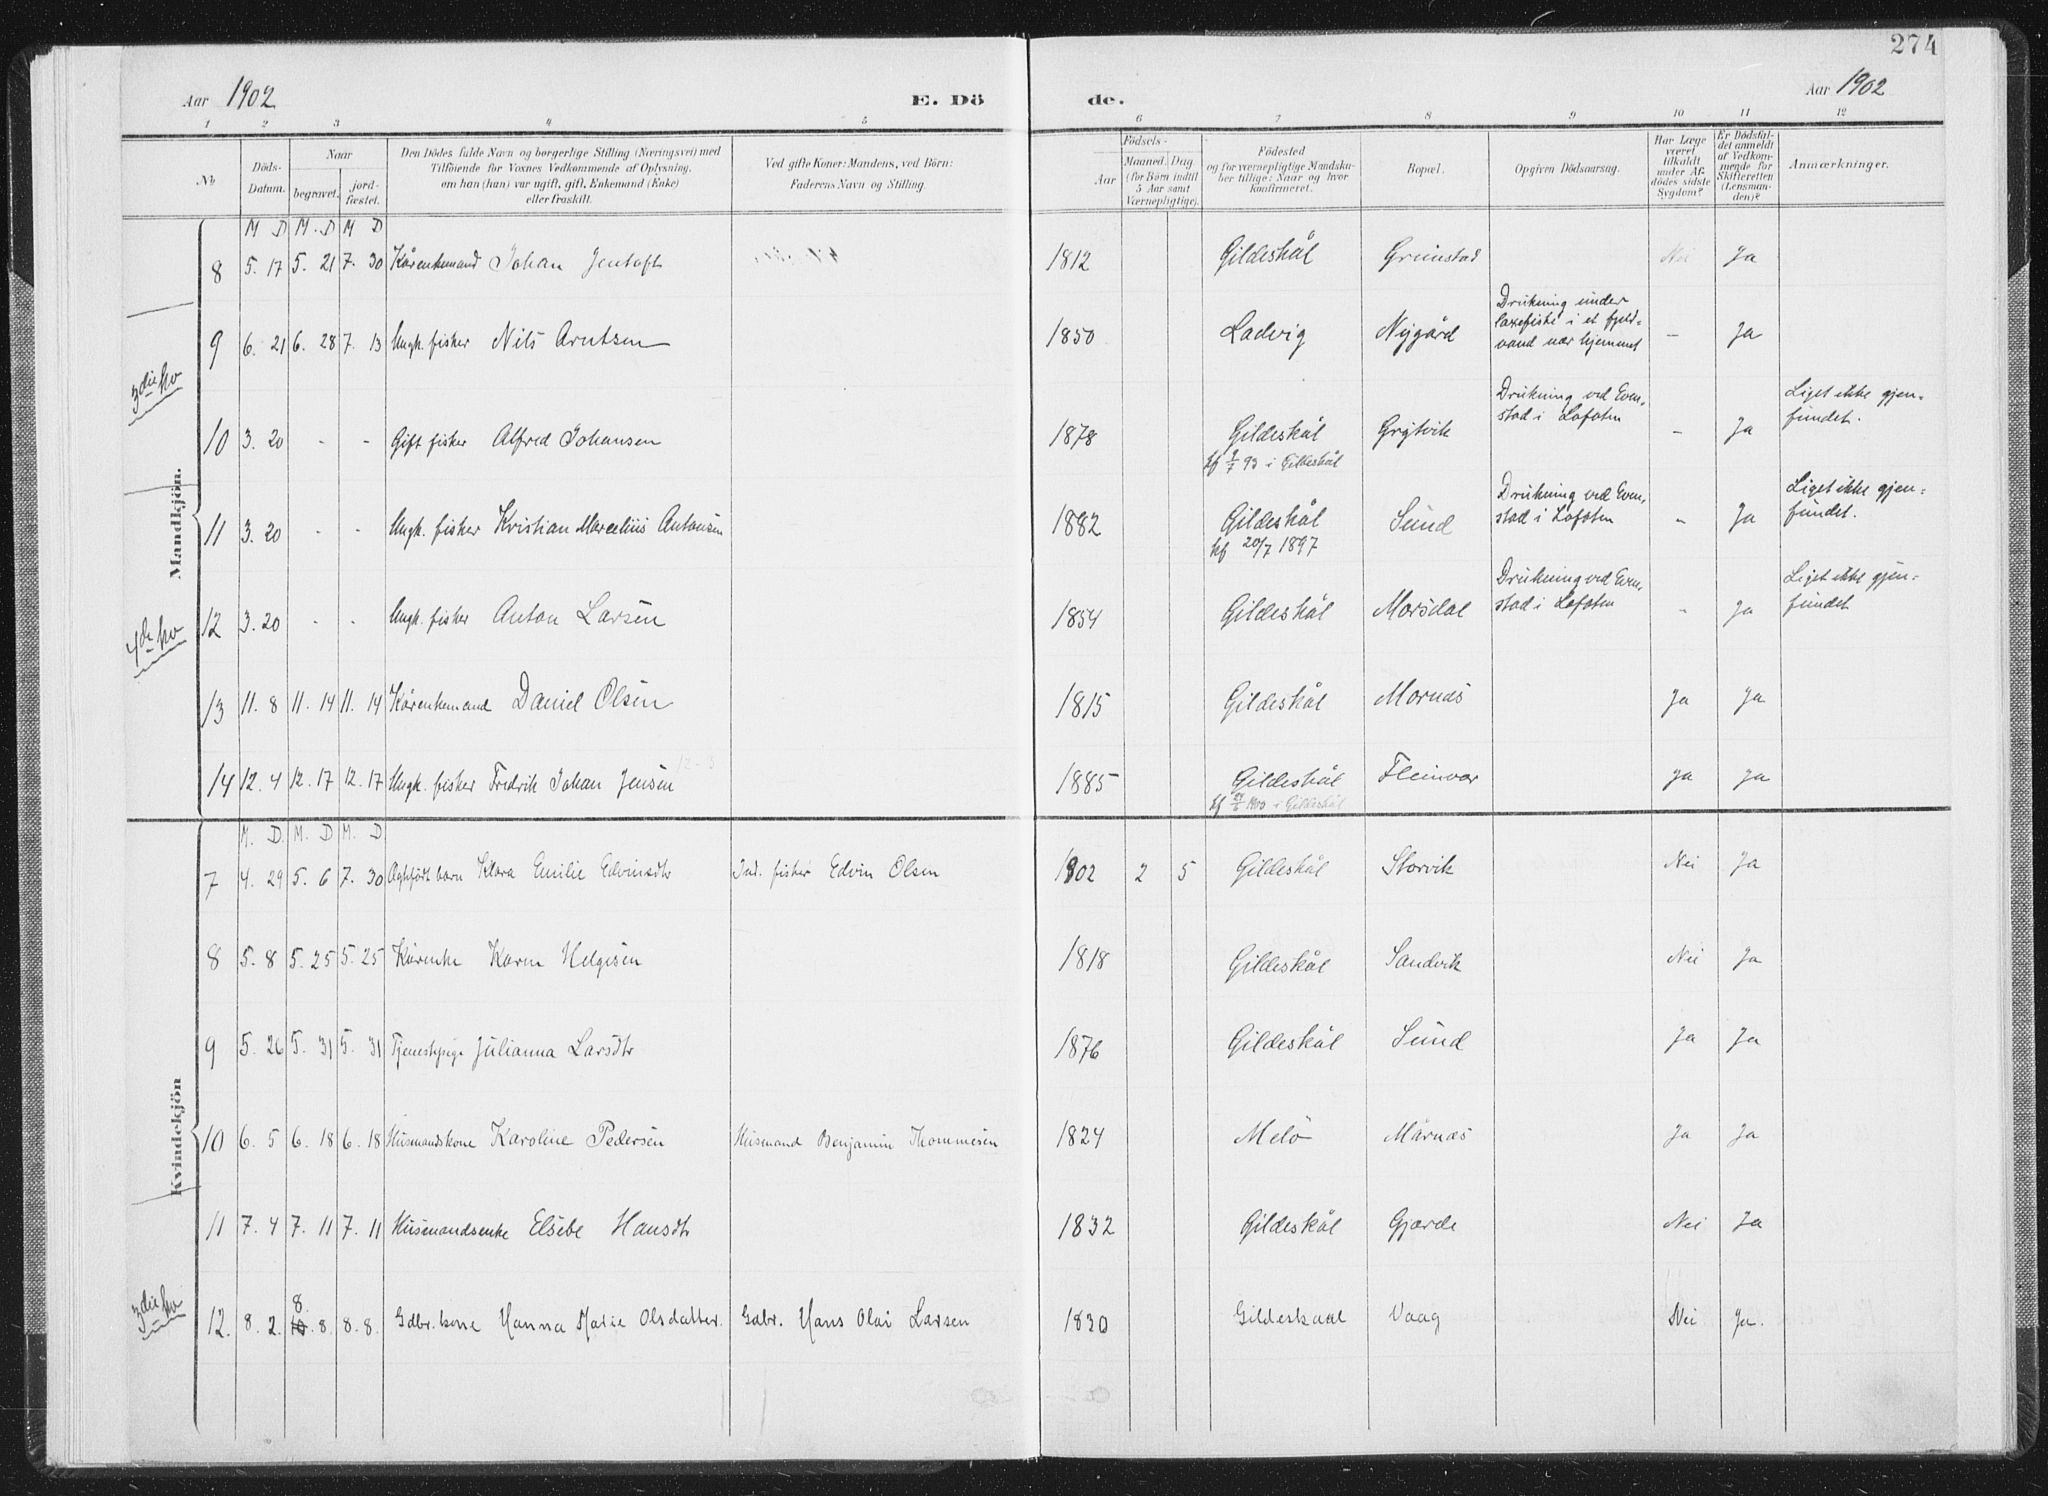 274
Aar 1902
E. Dö
de.
Aar 1902
1 2 3 4 5 6 7 8 9 10 11 12
No
Döds-
Datum.
Naar
begravet.
jord-
fæstet.
Den Dödes fulde Navn og borgerlige Stilling (Næringsvei) med
Tilföiende for Voxnes Vedkommende af Oplysning,
om han (hun) var ugift, gift, Enkemand (Enke)
eller fraskilt.
Ved gifte Koner: Mandens, ved Börn:
Faderens Navn og Stilling.
Födsels-
Aar
Maaned. Dag
(for Börn indtil
5 Aar samt
Værnepligtige).
Födested
og for værnepligtige Mandska-
ber tillige: Naar og hvor
konfirmeret.
Bopæl.
Opgiven Dödsaarsag.
Har Læge
været
tilkaldt
under Af-
dödes sidste
Sygdom?
Er Dödsfal-
det anmeldt
af Vedkom-
mende for
Skifteretten
(Lensman-
den)?
Anmærkninger.
Mandkjön.
M D M. D M D
8 5. 17 5. 21 7. 30 Kårenkemand Johan Jentoft 1812 Gildeskål Grimstad Nei Ja
9 6. 21 6. 28 7. 13 Ungk. fisker Nils Arntsen 1850 Ladvig Nygård Drukning under
laxefiske i et fjeld-
vand nær hjemmet - Ja
3die kv
10 3. 20 - - Gift fisker Alfred Johansen 1878 Gildeskål Grytvik Drukning ved Even-
stad i Lofoten - Ja Liget ikke gjen-
fundet.
kf 9/7 93 i Gildeskål
11 3. 20 - - Ungk. fisker Kristian Marcelius Antonsen 1882 Gildeskål Sund Drukning ved Even-
stad i Lofoten - Ja Liget ikke gjen-
fundet.
kf 20/7 1897
12 3. 20 - - Ungk. fisker Anton Larsen 1854 Gildeskål Morsdal Drukning ved Even-
stad i Lofoten - Ja Liget ikke gjen-
fundet
4de kv
13 11. 8 11. 14 11. 14 Kårenkemand Daniel Olsen 1815 Gildeskål Mornæs Ja Ja
14 12. 4 12. 17 12. 17 Ungk. fisker Fredrik Johan Jensen 12-3 1885 Gildeskål Fleinvær Ja Ja
kf 24/6 1900 i Gildeskål
Kvindekjön
M. D. M. D M. D
7 4. 29 5. 6 7. 30 Ægtefödt barn Klara Emilie Edvinsdtr Ind. fisker Edvin Olsen 1902 2 5 Gildeskål Storvik Nei Ja
8 5. 8 5. 25 5. 25 Kårenke Karen Helgesen 1818 Gildeskål Sandvik Nei Ja
9 5. 26 5. 31 5. 31 Tjenestepige Julianna Larsdtr 1876 Gildeskål Sund Ja Ja
10 6. 5 6. 18 6. 18 Husmandskone Karoline Pedersen Husmand Benjamin Thommesen 1824 Melö Mårnæs Ja Ja
11 7. 4 7. 11 7. 11 Husmandsenke Elsebe Hansdtr 1832 Gildeskål Gjærde Nei Ja
3die kv
12. 8. 2. 8. 8. 8. 8. Gdbr. kone Hanna Marie Olsdatter. Gdbr. Hans Olai Larsen 1830 Gildeskaal Vaag Nei Ja.